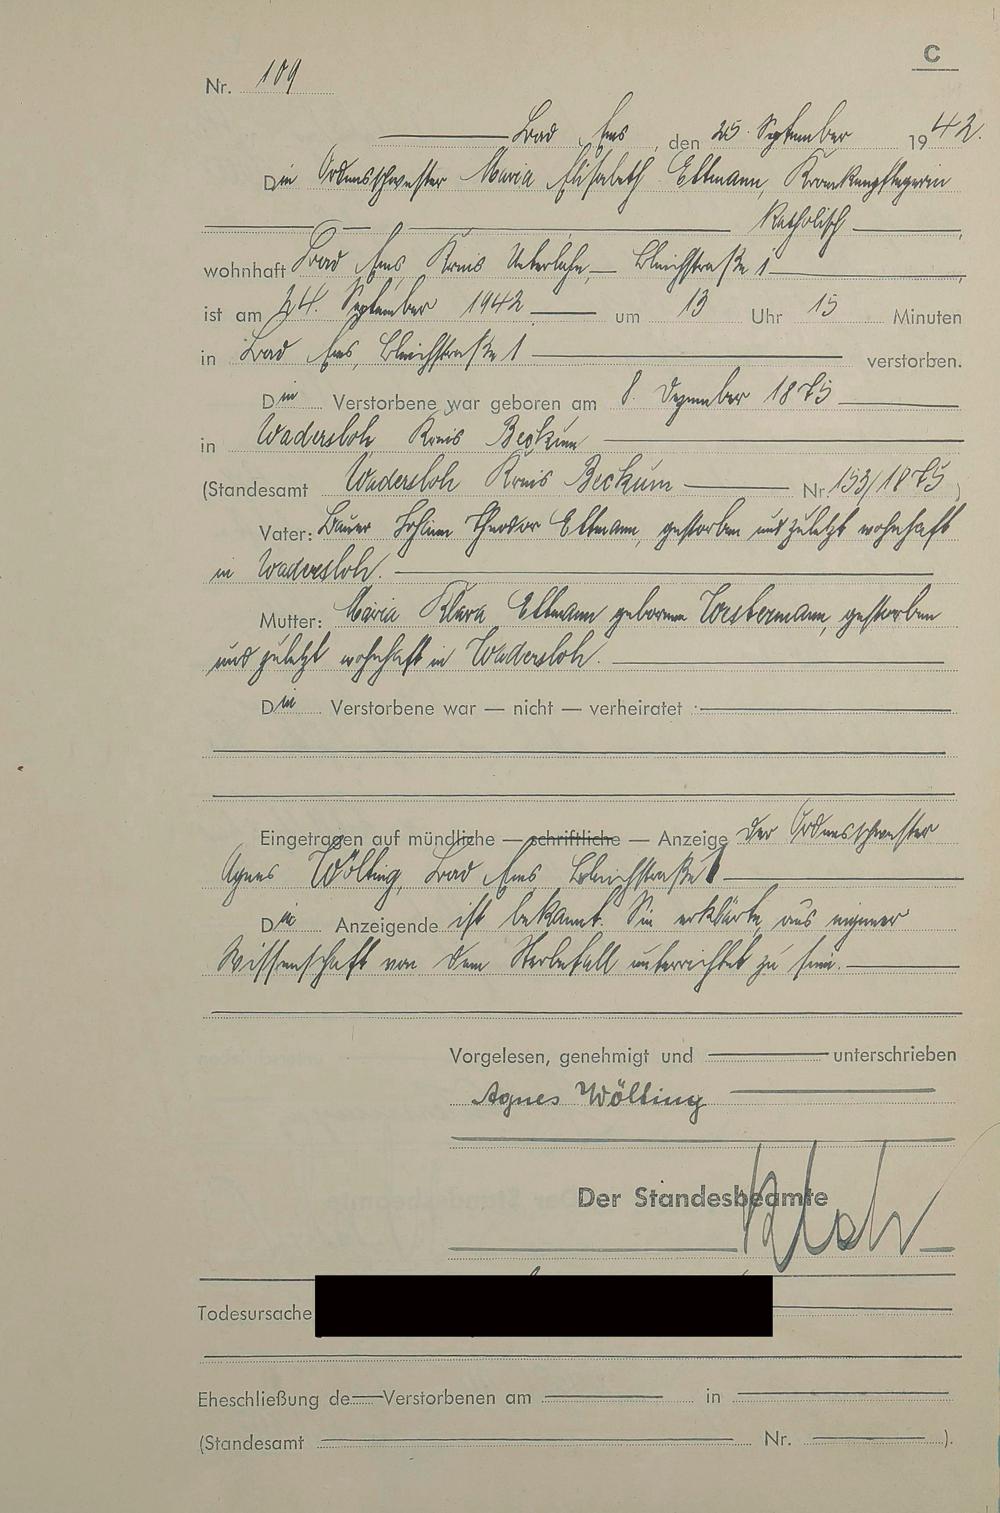 C
Nr. 109
Bad Ems, den 25. September 1942.
Die Ordensschwester Maria Elisabeth Eltmann, Krankenpflegerin
katholisch
wohnhaft Bad Ems, Kreis Unterlahn, Bleichstraße 1
ist am 24. September 1942 um 13 Uhr 15 Minuten
in Bad Ems, Bleichstraße 1 verstorben.
Die Verstorbene war geboren am 8. Dezember 1875
in Wadersloh Kreis Beckum
(Standesamt Wadersloh Kreis Beckum Nr. 153/1875)
Vater: Bauer Johann Theodor Eltmann, gestorben und zuletzt wohnhaft
in Wadersloh.
Mutter: Maria Klara Eltmann geborene Westermann, gestorben
und zuletzt wohnhaft in Wadersloh.
Die Verstorbene war — nicht — verheiratet
Eingetragen auf mündliche — schriftliche — Anzeige der Ordensschwester
Agnes Wölting, Bad Ems, Bleichstraße 1
Die Anzeigende ist bekannt. Sie erklärte, aus eigener
Wissenschaft von dem Sterbefall unterrichtet zu sein.
Vorgelesen, genehmigt und unterschrieben
Agnes Wölting
Der Standesbeamte
Todesursache
Eheschließung de Verstorbenen am in
(Standesamt Nr. ).